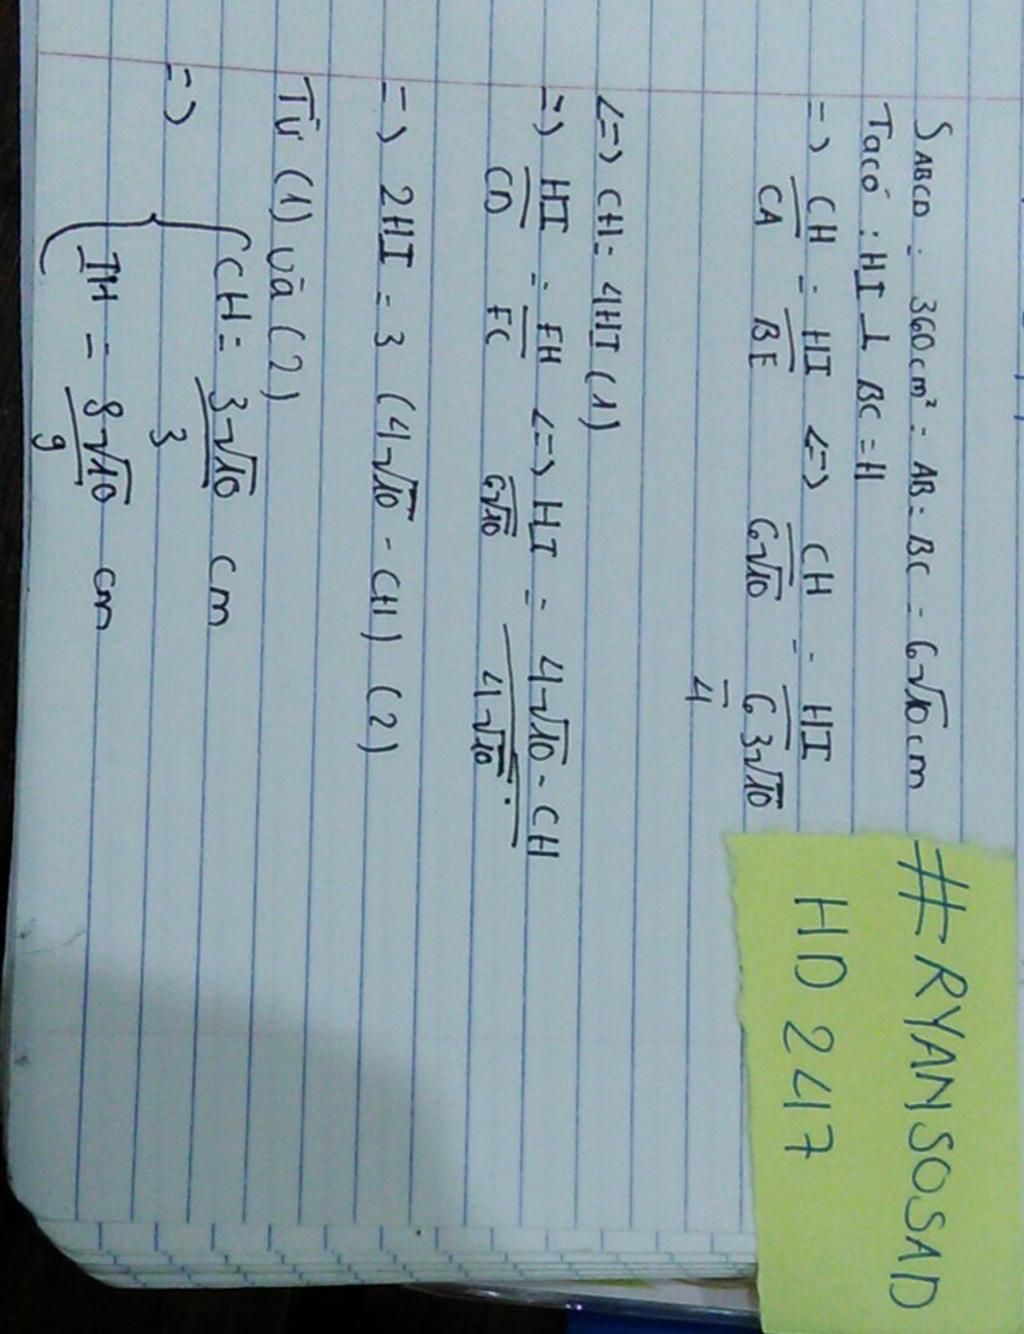 SABCD = 360cm² = AB = BC = 6√10cm
Ta có : HI ⊥ BC = H
=> CH/CA = HI/BE <=> CH/6√10 = HI/6 3√10
4
<=> CH = 4HI (1)
=> HI/CD = FH/FC <=> HI/6√10 = 4√10 - CH/4√10
=> 2HI = 3 (4√10 - CH) (2)
Từ (1) và (2)
=> { CH = 3√10/3 cm
IH = 8√10/9 cm
#RYANSOSAD
HD 247